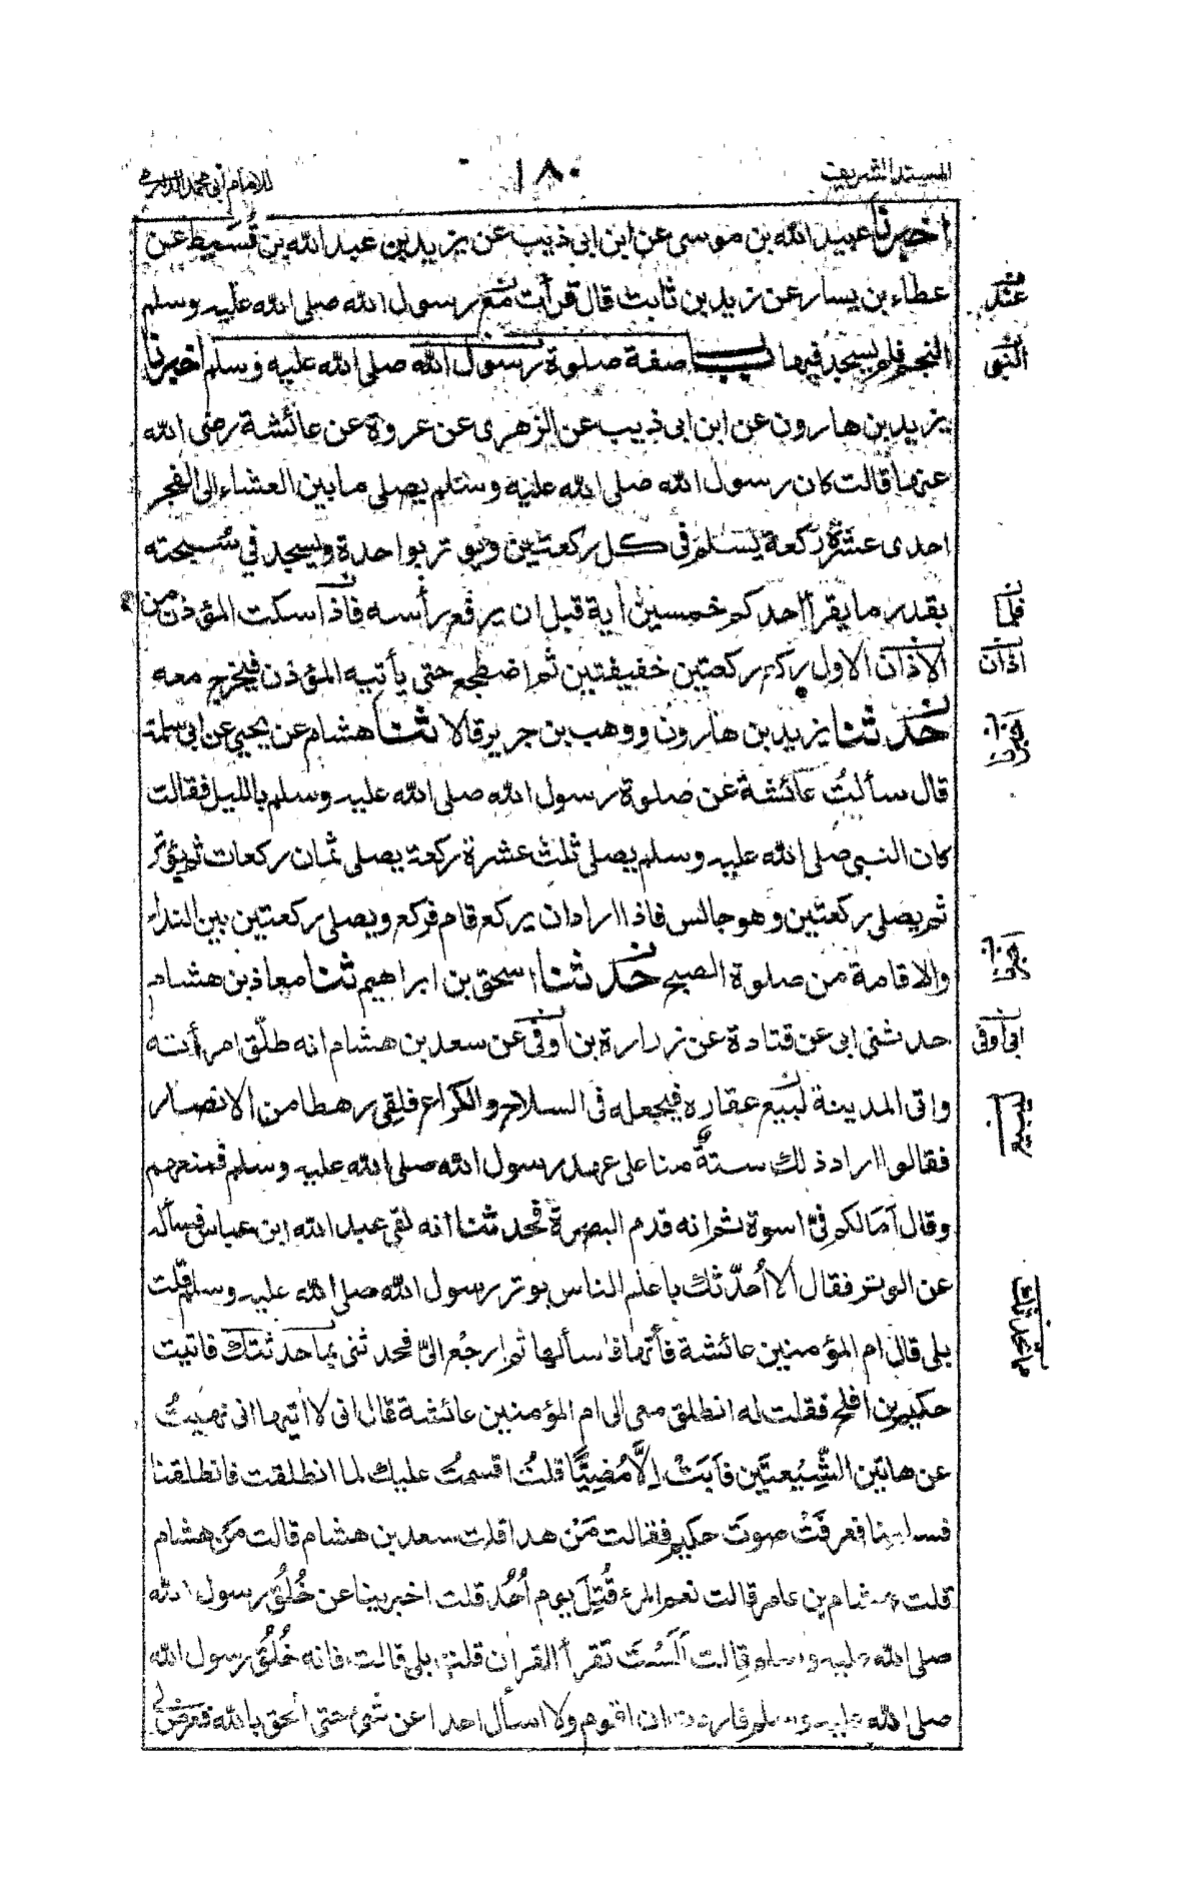 المسند الشريف
١٨٠
للامام ابى محمد الدارمى
اخبرنا عبيد الله بن موسى عن ابن ابى ذئب عن يزيد بن عبد الله بن قُسَيط عن
عطاء بن يسار عن زيد بن ثابت قال قرأت مع رسول الله صلى الله عليه وسلم
النجم فلم يسجد فيها باب صفة صلوة رسول الله صلى الله عليه وسلم اخبرنا
يزيد بن هارون عن ابن ابى ذيب عن الزهرى عن عروة عن عائشة رضى الله
عنها قالت كان رسول الله صلى الله عليه وسلم يصلى ما بين العشاء الى الفجر
احدى عشرة ركعة يسلم فى كل ركعتين ويوتر بواحدة ويسجد في سُبحته
بقدر ما يقرأ احدكم خمسين أية قبل ان يرفع رأسه فاذا سكت المؤذن من
الاذان الاول ركع ركعتين خفيفتين ثم اضطجع حتى يأتيه المؤذن فيخرج معه
حدثنا يزيد بن هارون ووهب بن جرير قالا ثنا هشام عن يحيى عن ابى سلمة
قال سألتُ عائشة عن صلوة رسول الله صلى الله عليه وسلم بالليل فقالت
كان النبى صلى الله عليه وسلم يصلى ثلث عشرة ركعة يصلى ثمان ركعات ثم يؤتر
ثم يصلى ركعتين وهو جالس فاذا اراد ان يركع قام فركع ويصلى ركعتين بين النداء
والاقامة من صلوة الصبح حدثنا اسحق بن ابراهيم ثنا معاذ بن هشام
حدثنى ابى عن قتادة عن زرارة بن اوفى عن سعد بن هشام انه طلّق امرأته
واتى المدينة لبيع عقاره فيجعله فى السلاح والكراع فلقى رهطا من الانصار
فقالوا اراد ذلك ستةٌ منا على عهد رسول الله صلى الله عليه وسلم فمنعهم
وقال أمالكم فىّ اسوة ثم انه قدم البصرة فحدثنا انه لقى عبد الله ابن عباس فسأله
عن الوتر فقال ألا أُحدّثك باعلم الناس بوتر رسول الله صلى الله عليه وسلم قلت
بلى قال ام المؤمنين عائشة فأتها فاسألها ثم ارجعْ الىّ فحدثنى بما حدثتك فاتيت
حكيم بن افلح فقلت له انطلق معى الى ام المؤمنين عائشة قال انى لا اتيها انى نهيتُ
عن هاتين الشِّيعتَين فأبَتْ اِلَّا مُضِيًّا قلتُ اقسمتُ عليك لما انطلقت فانطلقنا
فسلمنا فعرفَتْ صوتَ حكيم فقالت مَنْ هذا قلت سعد بن هشام قالت مَن هشام
قلت هشام بن عامر قالت نعم المرء قُتِلَ يوم اُحُد قلت اخبرينا عن خُلُق رسول الله
صلى الله عليه وسلم قالت اَلَسْتَ تقرأ القران قلت بلى قالت فانه خُلُق رسول الله
صلى الله عليه وسلم فاردت ان اقوم ولا اسأل احدا عن شئ حتى الحق بالله فعرض لى
عند
النبى
فلما
اذان
اخبرنا
اخبرنا
ابى اوفى
ليبيع
ما تحدثك